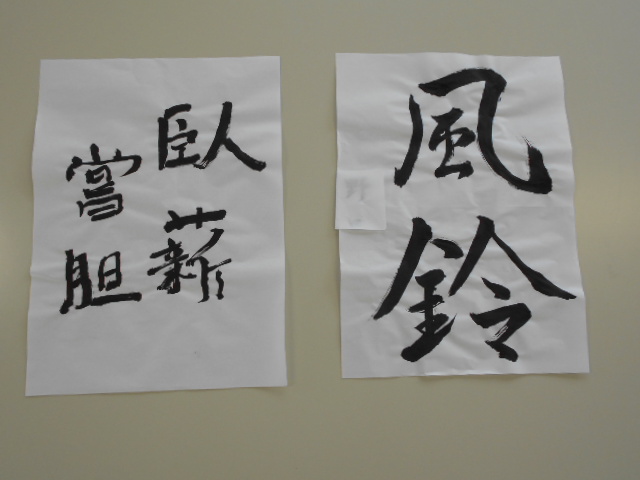 風鈴
臥薪
嘗胆